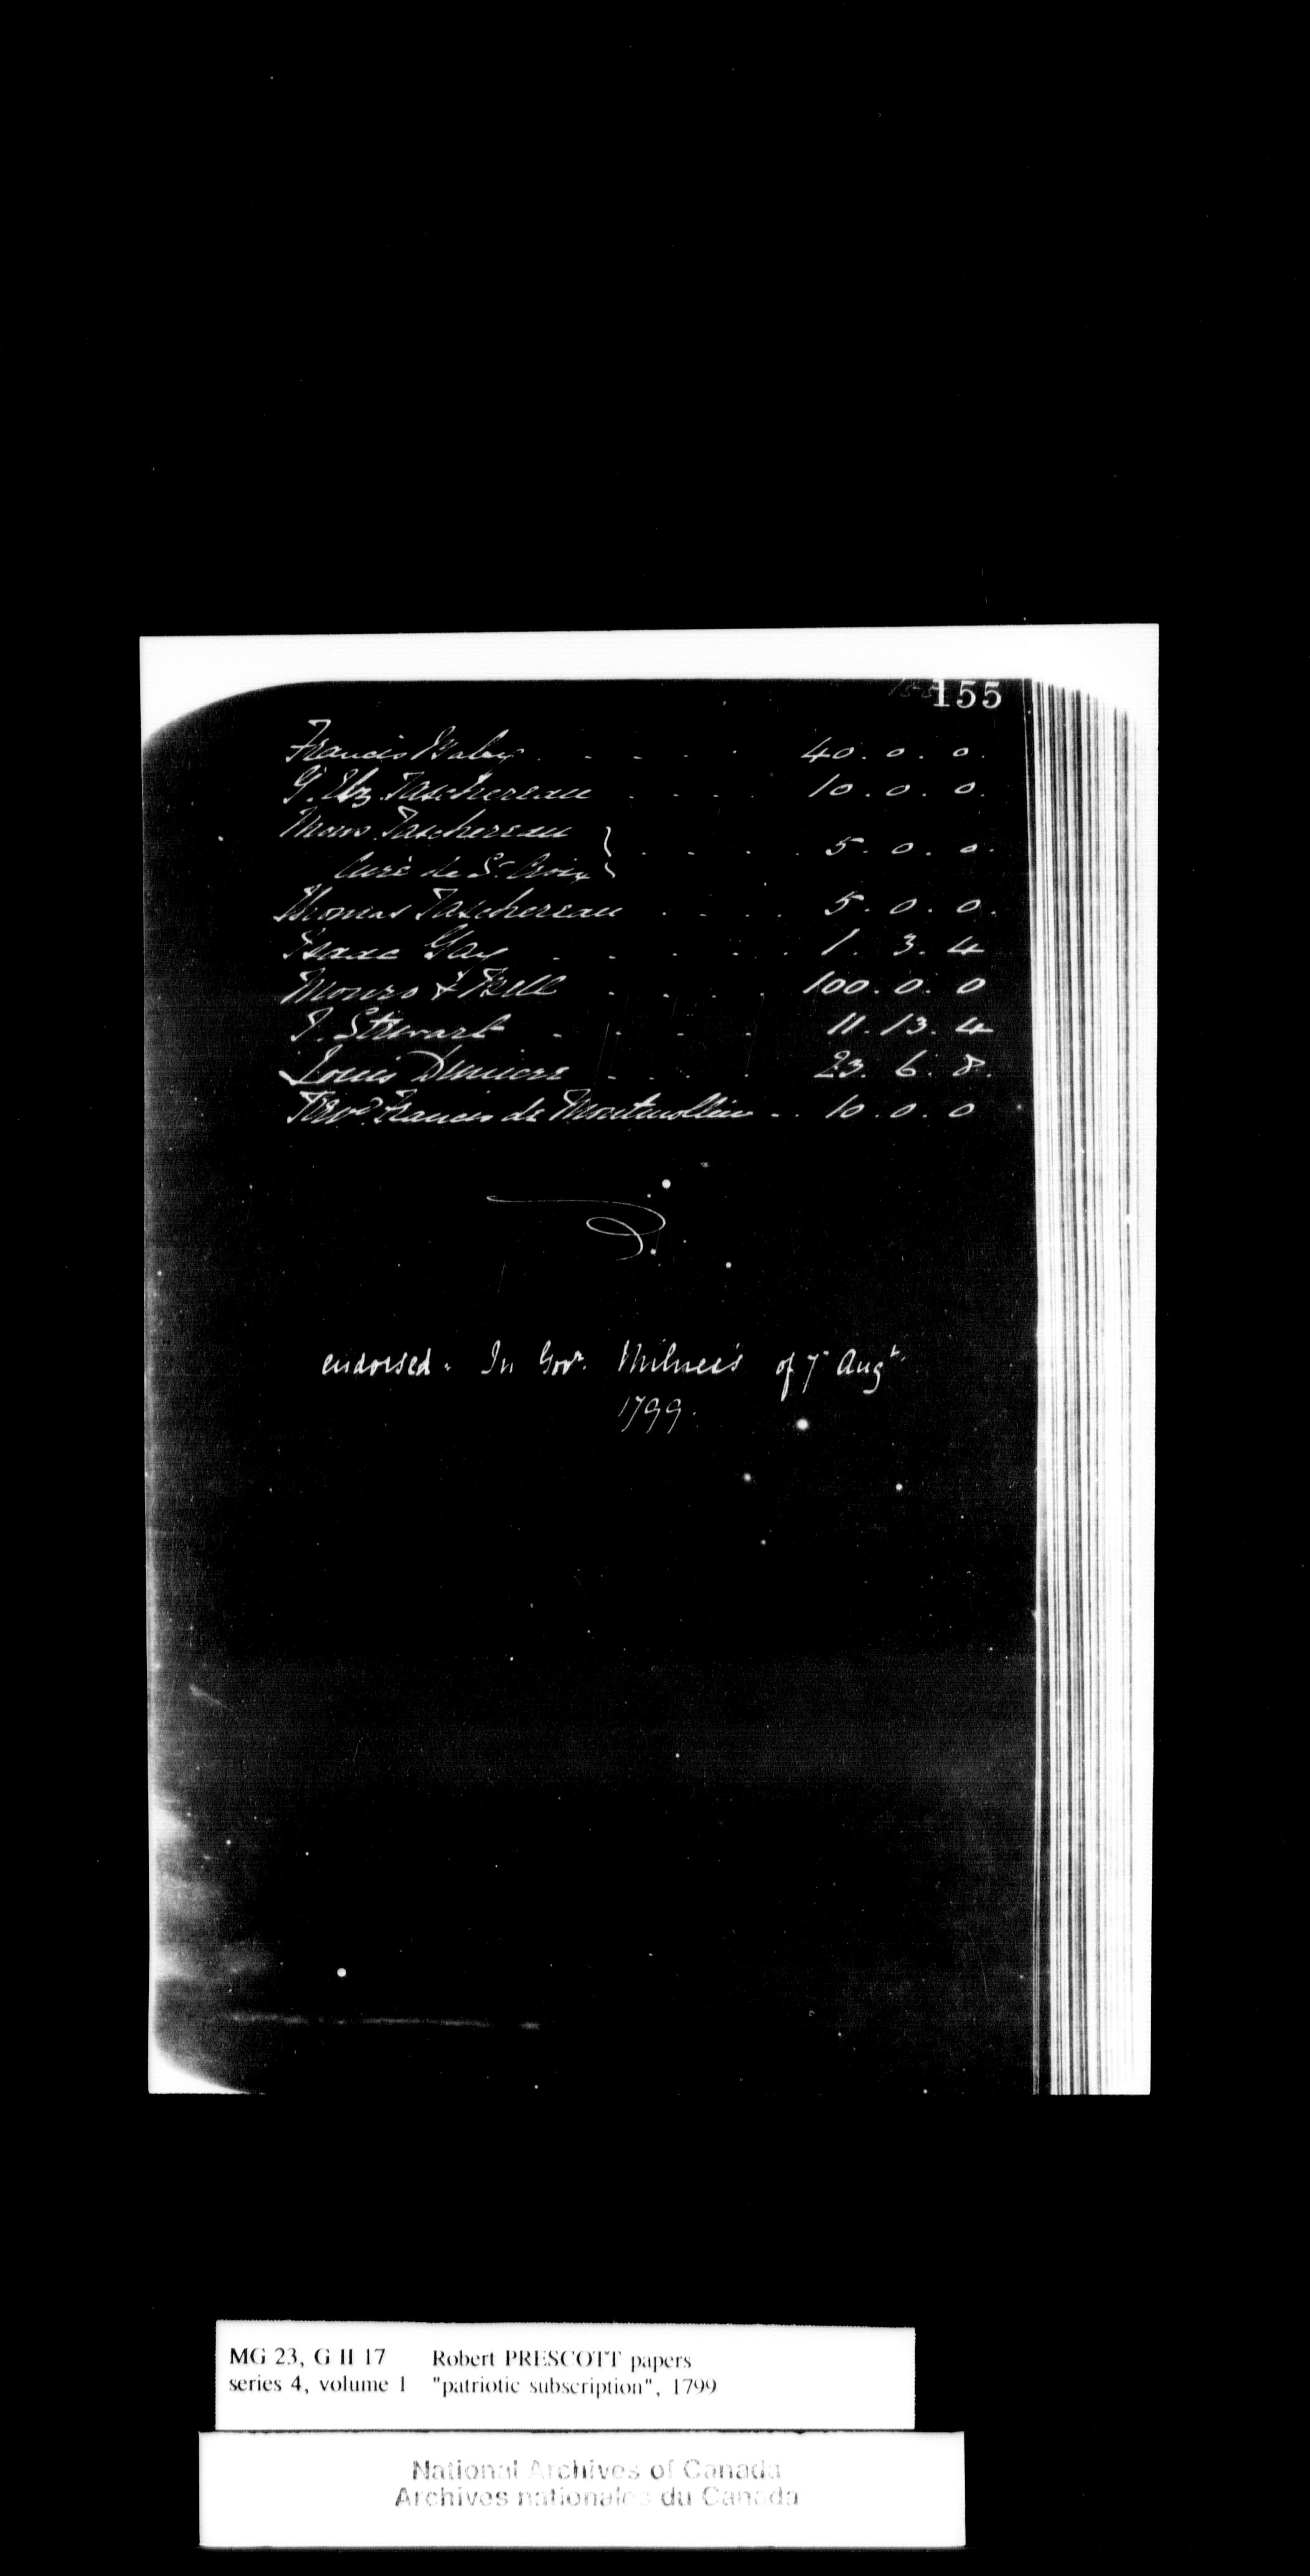 155
Francis Baby . . . . . 40 . 0 . 0 .
G. Elz. Taschereau . . . . 10 . 0 . 0 .
Mons. Taschereau
Curé de St. Croix } . . . . . 5 . 0 . 0 .
Thomas Taschereau . . . . 5 . 0 . 0 .
Isaac Gay . . . . . . 1 . 3 . 4
Monro & Bell . . . . 100 . 0 . 0
J. Stewart . . . . 11 . 13 . 4
Louis Duniere . . . . 23 . 6 . 8 .
Revd. Francis de Montmollin . . 10 . 0 . 0
endorsed. In Govr. Milnes's of 7 Augt.
1799.
MG 23, G II 17 Robert PRESCOTT papers
series 4, volume 1 "patriotic subscription", 1799
National Archives of Canada
Archives nationales du Canada